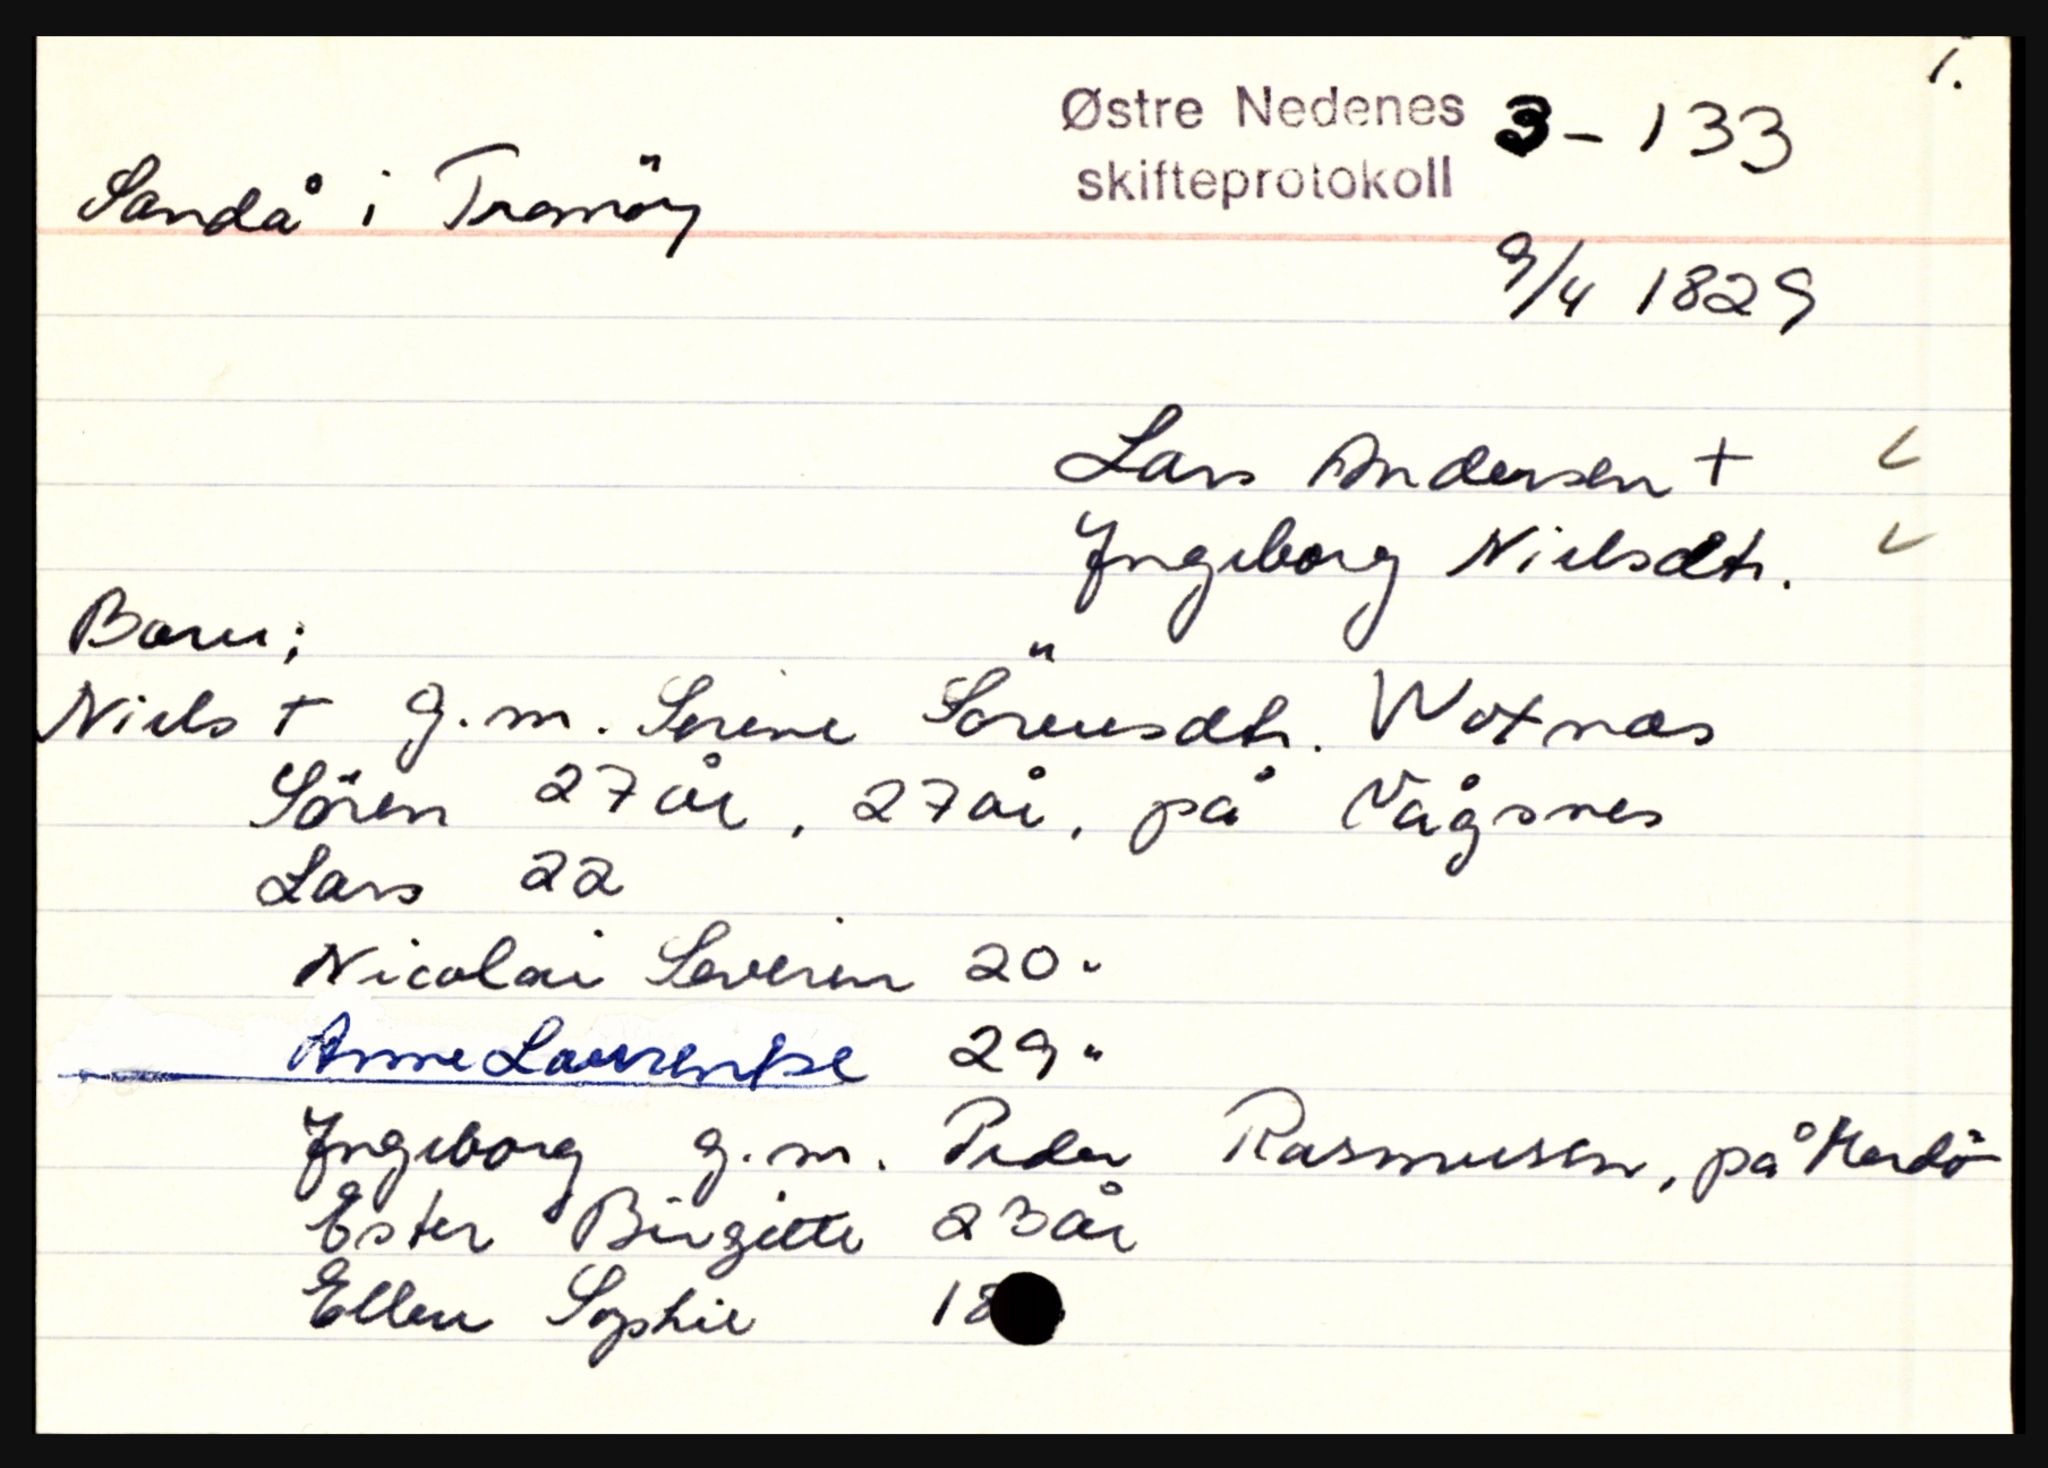 1.
Østre Nedenes 3 - 133
skifteprotokoll
Sandå i Tromöy
9/4 1829
Lars Andersen +
Ingeborg Nielsdtr.
Barn;
Niels + g.m. Serine Sörensdtr. Wotnæs
Sören 27 år, 27 år, på Vågsnes
Lars 22
Nicolai Severin 20 "
Anne Laurentse 29 "
Ingeborg g.m. Peder Rasmussen, på Merdö
Ester Birgitte 23 år
Ellen Sophie 18